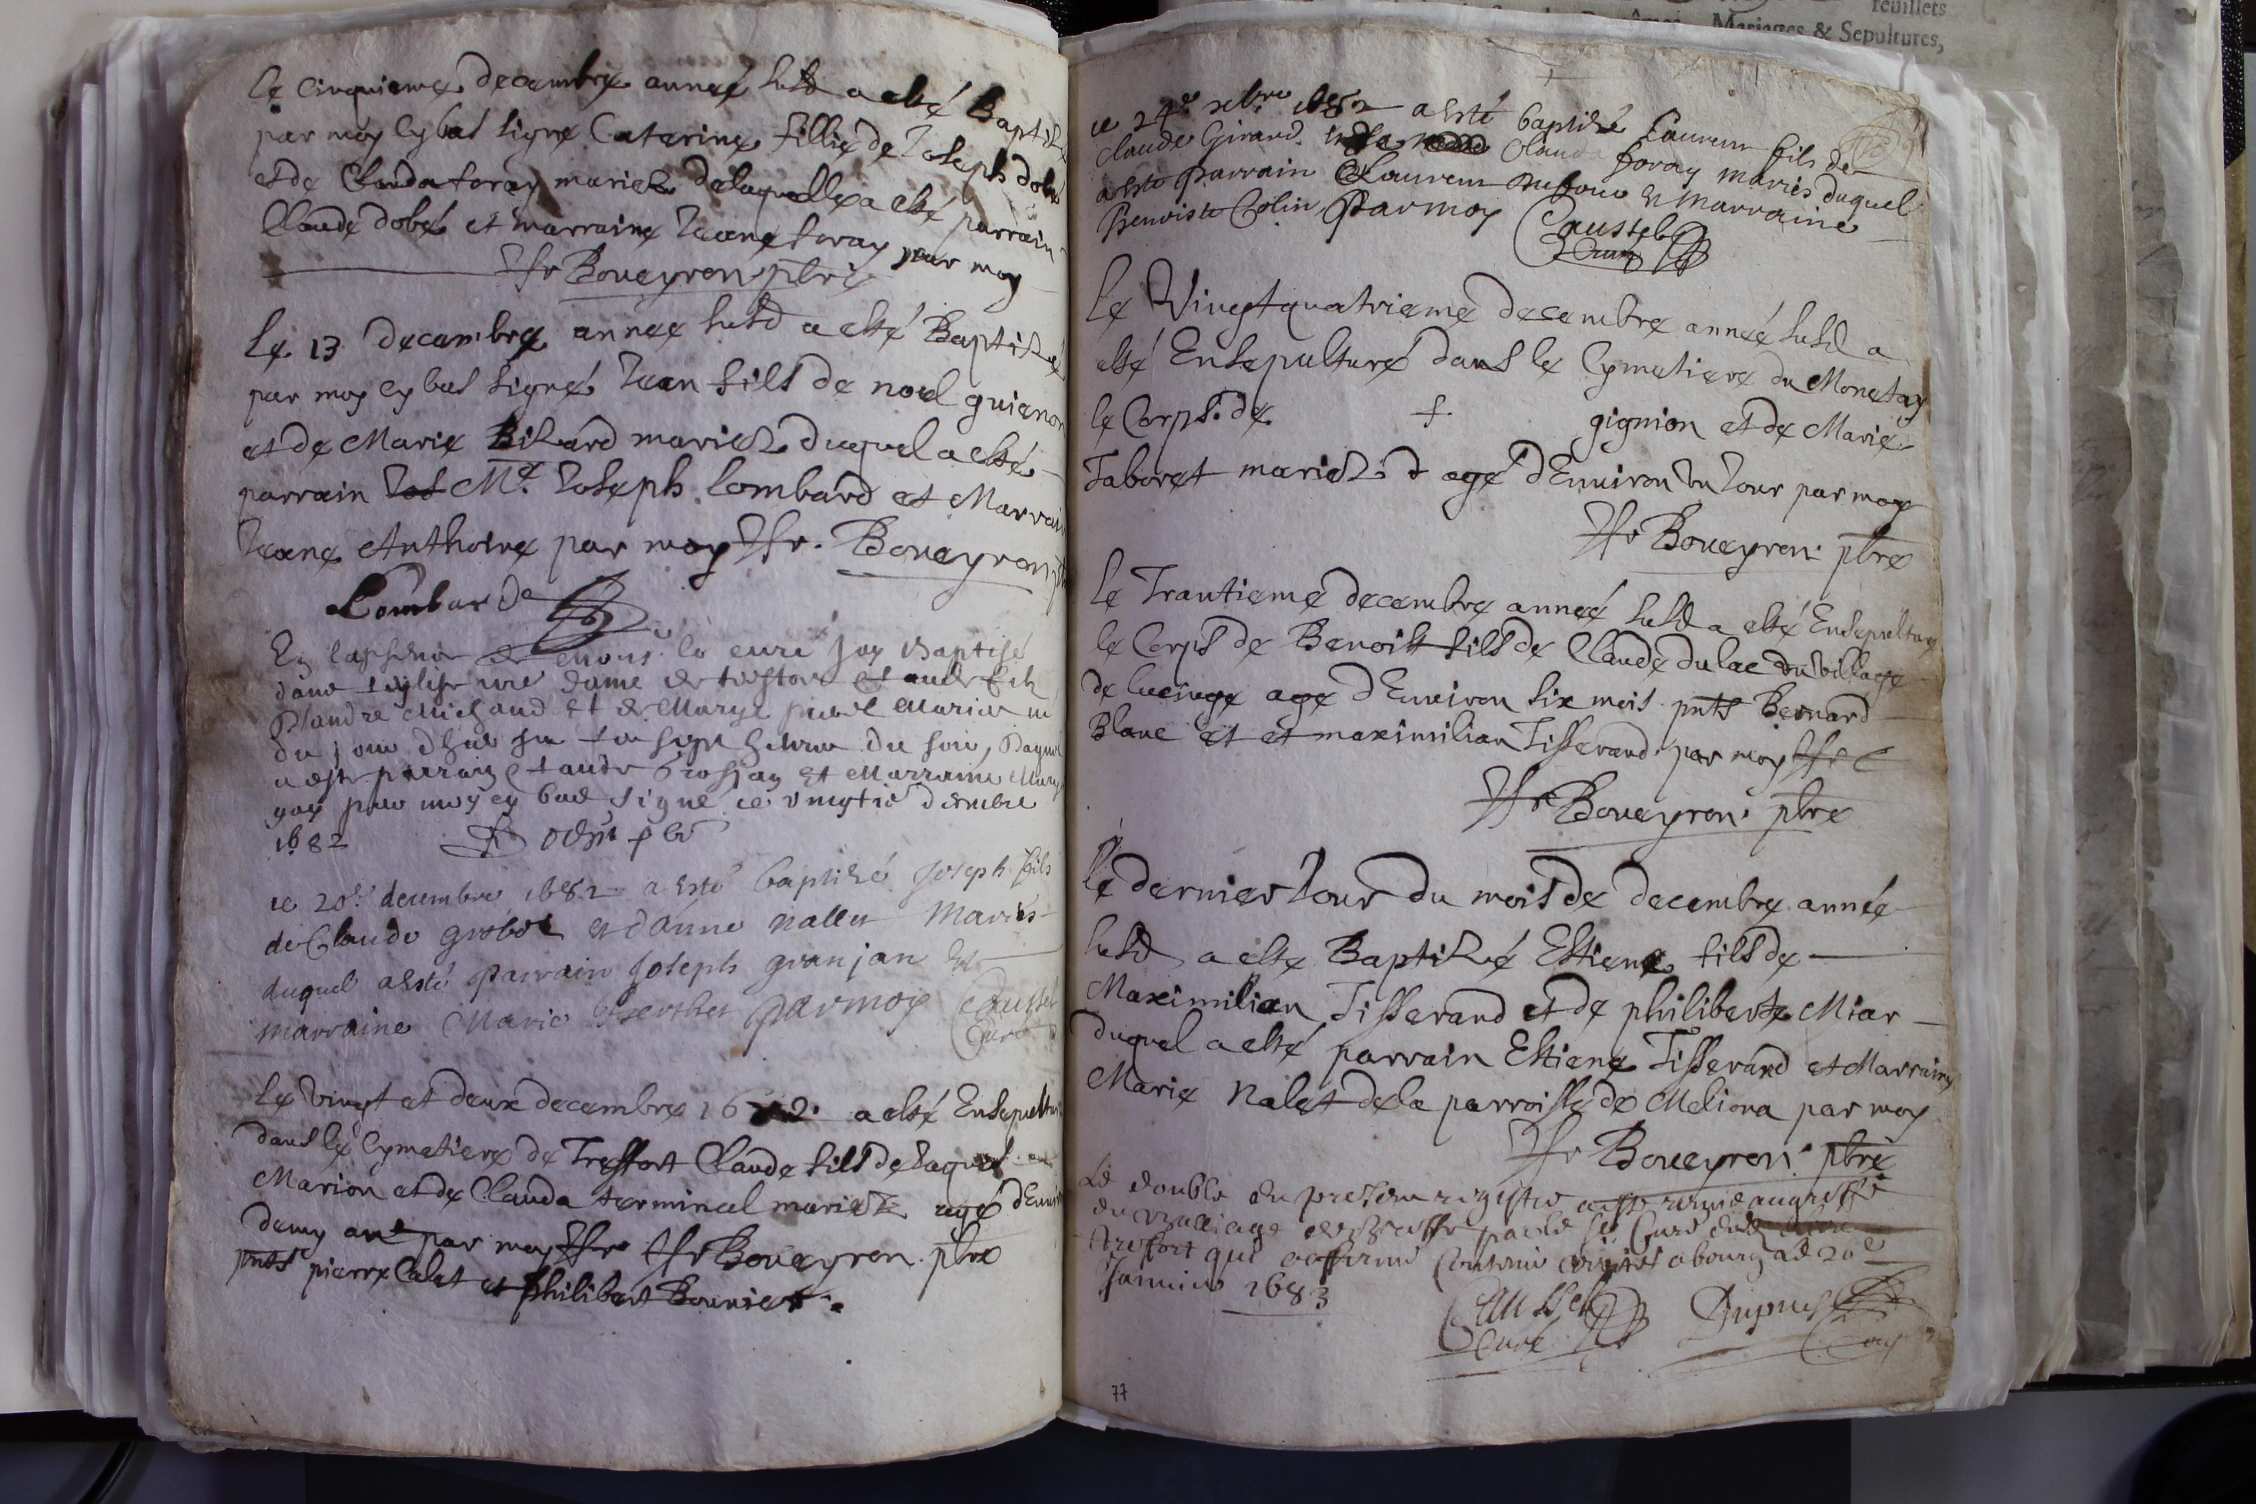 Le Cinquieme decembre année susd a esté Baptizé
par moy cy bas signé Caterine fillie de Joseph dobé
et de Clauda foray mariez de laquelle a esté parrain
Claude dobé et marraine Jeane foray par moy
Hr Boueyron pbre
Le 13 decembre année susd a esté Baptizé
par moy cy bas signé Jean fils de noel guienon
et de Marie Bizard mariez duquel a esté
parrain Mre Joseph Lombard et Marrain
Jeane Anthoine par moy Hr. Boueyron
Lombard
En l'absence de mons. le curé jay Baptisé
dans leglise nre dame de tresfort Claude fils
Dandre Michaud et de Marye mariés
du jour dhier du soir, Duquel
a esté parrain Claude grosjan et Marraine Mary
par moy cy bas signé ce vingtie decembre
1682 pbre
ce 20e decembre 1682 a esté baptizé Joseph fils
de Claude grobot et dAnne nallet Mariés
duquel a esté parrain Joseph granjan Et
marraine Marie Berthet par moy Caussel
Curé
Le vingt et deux decembre 1682 a esté Ensepulture
dans le Cymetiere de Treffort Claude fils de Jaques
Marion et de Clauda terminal mariez agé dEnviron
demy an par moy Hr Boueyron pbre
pnts pierre Calet et philibert Bounier.
ce 24e xbre 1682 a esté baptizé Laurent fils de
Claude Girard Clauda foray mariés duquel
a esté parrain Laurent et marraine
Benoiste Colin Par moy Caussel
Curé
Le Vingt quatrieme decembre année susd a
esté Ensepulturé dans le Cymetiere du Monetay
le Corps de f. gignion et de Marie
Taboret mariez agé dEnviron un Jour par moy
Hr Boueyron pbre
Le Trantieme decembre année susd a esté Ensepulturé
le Corps de Benoist fils de Claude dulac du village
de lucinge age dEnviron six mois pnts Bernard
Blanc et et maximilian Tisserand par moy Hr
Hr Boueyron pbre
Le dernier Jour du mois de decembre année
susd a esté Baptizé Estiene fils de
Maximilian Tisserand et de philiberte Miar
duquel a esté parrain Estiene Tisserand et Marraine
Marie Nalet de la parroisse de Meliona par moy
Hr Boueyron pbre
Le double du present registre a esté remis au greffe
du Balliage de Bresse par le sr Curé
Treffort qui affirmé Contenir verité a bourg ce 20e
Janvier 1683
Caussel
Curé
Dupuis
77
feuillets
Mariages & Sepultures,